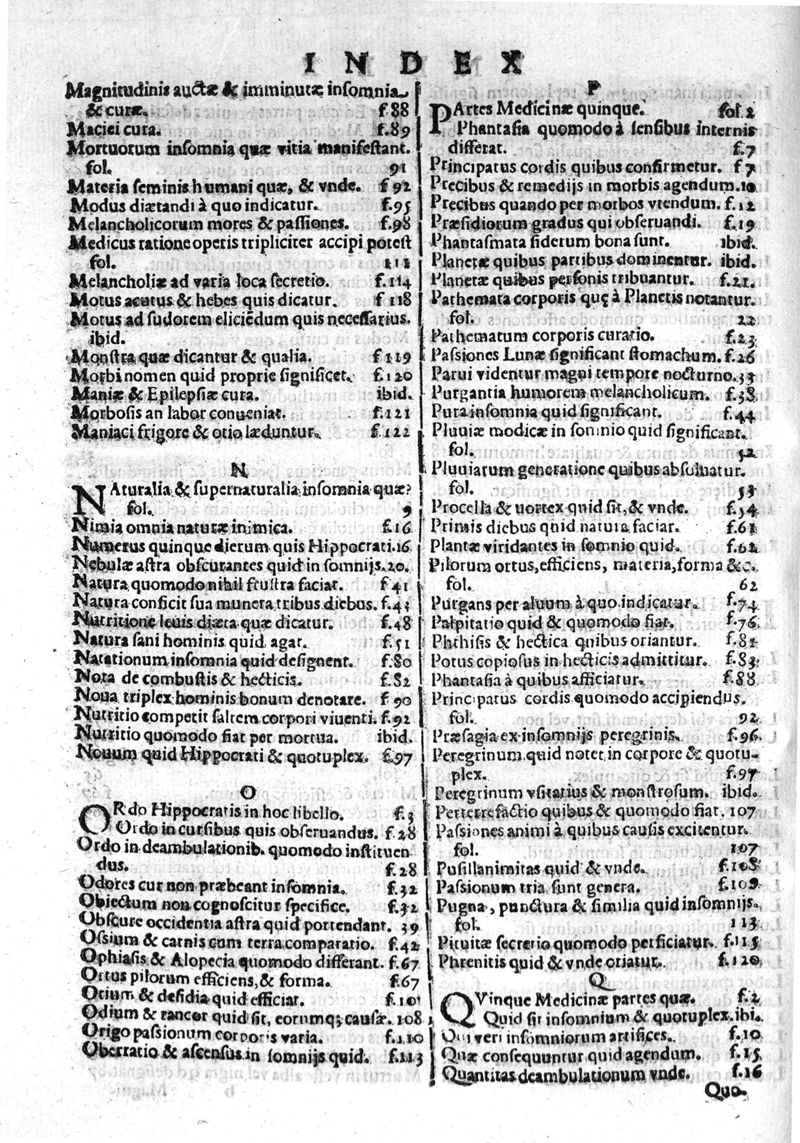 INDEX
Magnitudinis auctæ & imminutæ insomnia
& curæ. f.88
Maciei cura. f.89
Mortuorum insomnia quæ vitia manifestant.
fol. 91
Materia seminis humani quæ, & vnde. f 92
Modus diætandi à quo indicatur. f.95
Melancholicorum mores & passiones. f.98
Medicus ratione operis tripliciter accipi potest
fol. 111
Melancholiæ ad varia loca secretio. f.114
Motus acutus & hebes quis dicatur. f 118
Motus ad sudorem eliciēdum quis necessarius.
ibid.
Monstra quæ dicantur & qualia. f.119
Morbi nomen quid proprie significet. f.120
Maniæ & Epilepsiæ cura. ibid.
Morbosis an labor conueniat. f.121
Maniaci frigore & otio læduntur. f.122
N
NAturalia & supernaturalia insomnia quæ?
fol. 9
Nimia omnia naturæ inimica. f.16
Numerus quinque dierum quis Hippocrati.16
Nebulæ astra obscurantes quid in somnijs.20.
Natura quomodo nihil frustra faciat. f 41
Natura conficit sua munera tribus diebus. f.43
Nutritione leuis diæta quæ dicatur. f.48
Natura sani hominis quid agat. f.51
Natationum insomnia quid designent. f.80
Nota de combustis & hecticis. f.82
Noua triplex hominis bonum denotare. f 90
Nutritio competit saltem corpori viuenti. f.92
Nutritio quomodo fiat per mortua. ibid.
Nouum quid Hippocrati & quotuplex. f.97
O
ORdo Hippocratis in hoc libello. f.3
Ordo in cursibus quis obseruandus. f.28
Ordo in deambulationib. quomodo instituen
dus. f.28
Odores cur non præbeant insomnia. f.32
Obiectum non cognoscitur specifice. f.32
Obscure occidentia astra quid portendant. 39
Ossium & carnis cum terra comparatio. f.42
Ophiasis & Alopecia quomodo differant. f.67
Ortus pilorum efficiens, & forma. f.67
Otium & desidia quid efficiat. f.101
Odium & rancor quid sit, eorumq; causæ. 108
Origo passionum corporis varia. f.110
Oberratio & ascensus in somnijs quid. f.113
P
PArtes Medicinæ quinque. fol.2
Phantasia quomodo à sensibus internis
differat. f.7
Principatus cordis quibus confirmetur. f 7
Precibus & remedijs in morbis agendum.10
Precibus quando per morbos vtendum. f.12
Præsidiorum gradus qui obseruandi. f.19
Phantasmata siderum bona sunt. ibid.
Planetæ quibus partibus dominentur. ibid.
Planetæ quibus personis tribuantur. f.21.
Pathemata corporis quę à Planetis notantur.
fol. 22
Pathematum corporis curatio. f.23
Passiones Lunæ significant stomachum. f.26
Parui videntur magni tempore nocturno.33
Purgantia humorem melancholicum. f.38
Pura insomnia quid significant. f.44
Pluuiæ modicæ in somnio quid significant.
fol. 52
Pluuiarum generatione quibus absoluatur.
fol. 53
Procella & vortex quid sit, & vnde. f.54
Primis diebus quid natura faciat. f.61
Plantæ viridantes in somnio quid. f.62
Pilorum ortus, efficiens, materia, forma &c.
fol. 62
Purgans per aluum à quo indicatur. f.74
Palpitatio quid & quomodo fiat. f.76
Phthisis & hectica quibus oriantur. f.81
Potus copiosus in hecticis admittitur. f.83
Phantasia à quibus afficiatur. f.88
Principatus cordis quomodo accipiendus.
fol. 92
Præsagia ex insomnijs peregrinis. f.96
Peregrinum quid notet in corpore & quotu-
plex. f.97
Peregrinum vsitatius & monstrosum. ibid.
Perterrefactio quibus & quomodo fiat. 107
Passiones animi à quibus causis excitentur.
fol. 107
Pusillanimitas quid & vnde. f.108
Passionum tria sunt genera. f.109
Pugna, punctura & similia quid insomnijs.
fol. 113
Pituitæ secretio quomodo perficiatur. f.115
Phrenitis quid & vnde oriatur. f.120
Q
QVinque Medicinæ partes quæ. f.2
Quid sit insomnium & quotuplex.ibi.
Qui veri insomniorum artifices. f.10
Quæ consequuntur quid agendum. f.15
Quantitas deambulationum vnde. f.16
Quo-